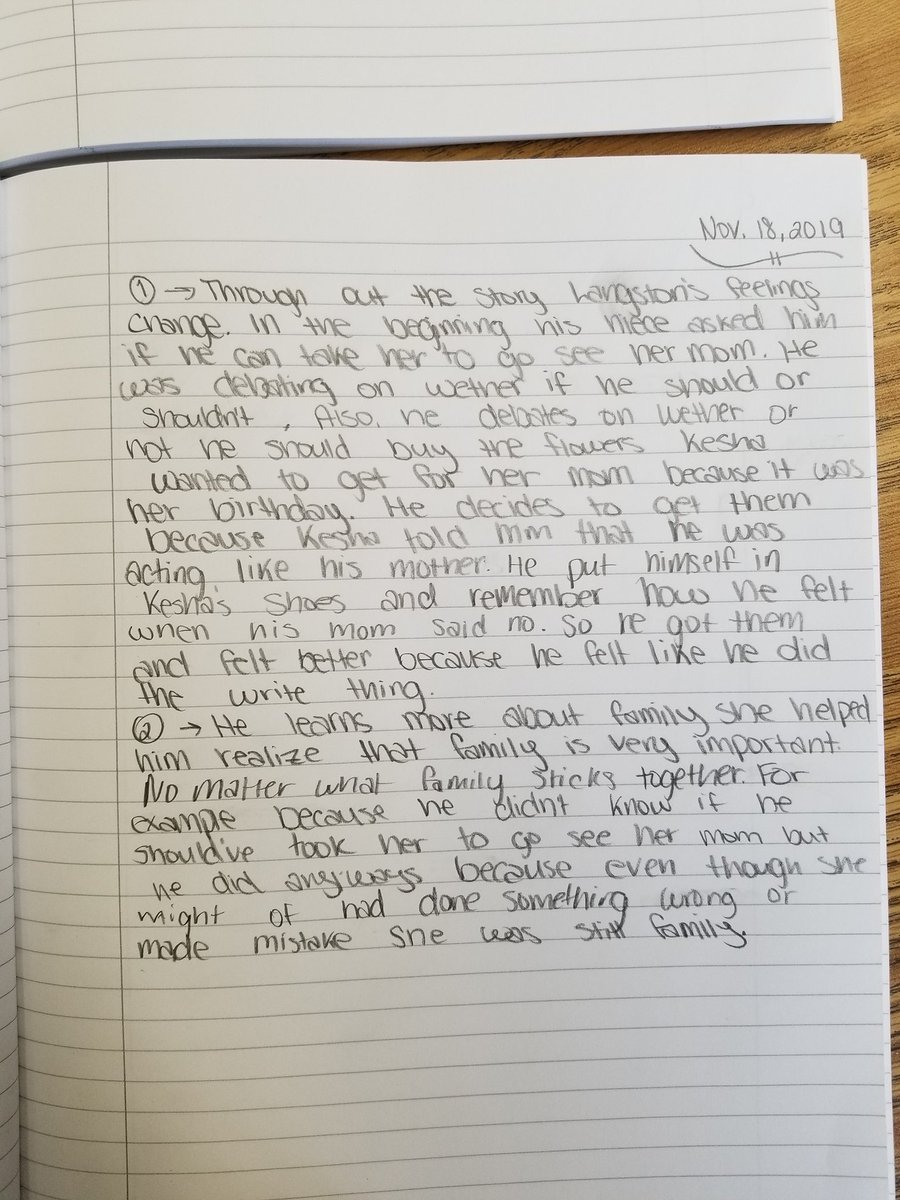 Nov. 18, 2019
① → Through out the story Langston's feelings
change. In the beginning his niece asked him
if he can take her to go see her mom. He
was debating on wether if he should or
shouldn't, Also, he debates on wether or
not he should buy the flowers Kesha
wanted to get for her mom because it was
her birthday. He decides to get them
because Kesha told him that he was
acting like his mother. He put himself in
Kesha's shoes and remember how he felt
when his mom said no. So he got them
and felt better because he felt like he did
the write thing.
② → He learns more about family she helped
him realize that family is very important.
No matter what family sticks together. For
example because he didn't know if he
should've took her to go see her mom but
he did anyways because even though she
might of had done something wrong or
made mistake she was still family.